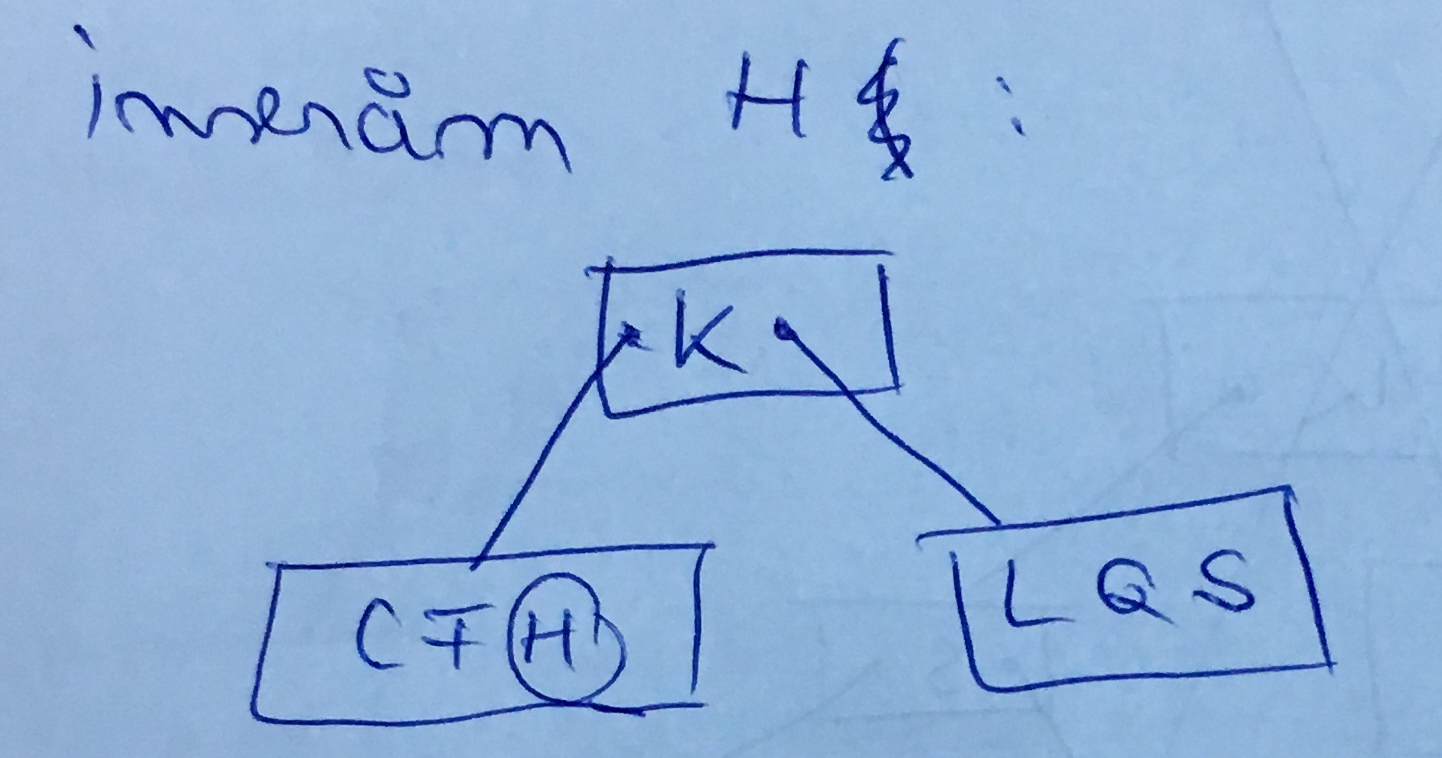 inserăm H :
K
C F H L Q S